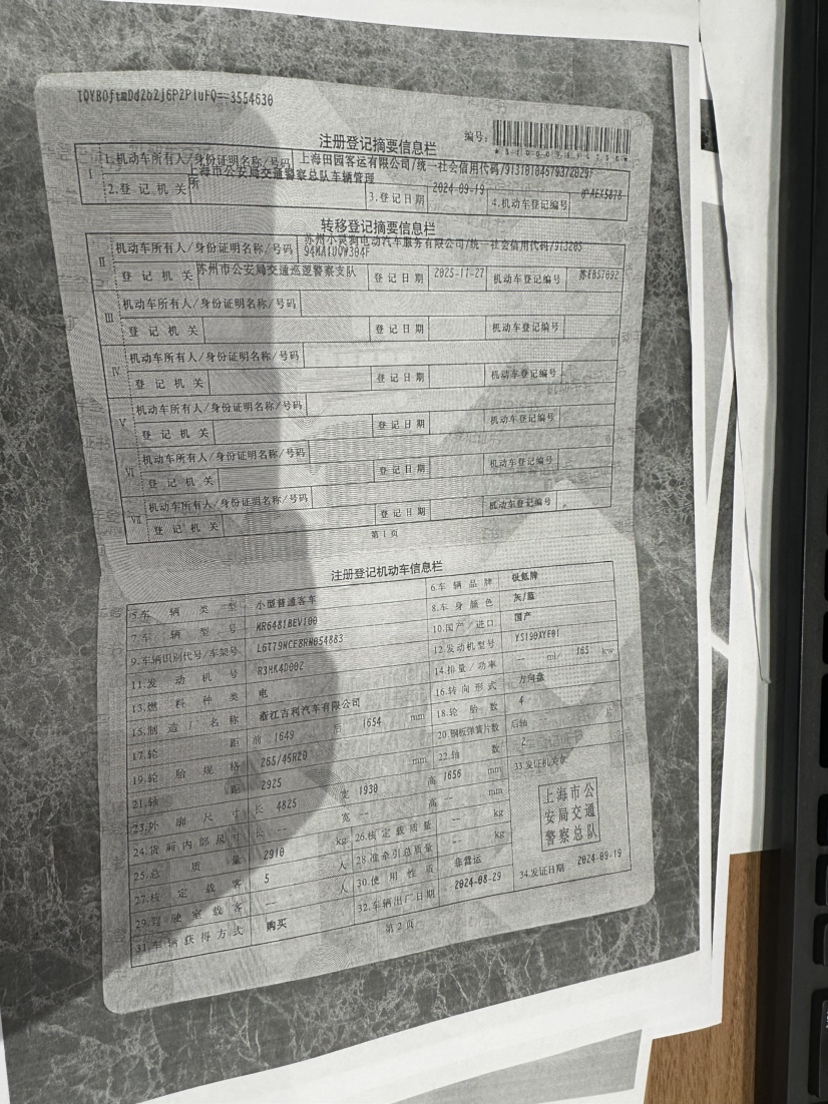 注册登记摘要信息栏
编号:
I 1.机动车所有人/身份证明名称/号码 上海田园客运有限公司/统一社会信用代码/
2.登记机关 上海市公安局交通警察总队车辆管理所 3.登记日期 2024-09-19 4.机动车登记编号
转移登记摘要信息栏
II 机动车所有人/身份证明名称/号码 苏州小灵狗电动汽车服务有限公司/统一社会信用代码/
登记机关 苏州市公安局交通巡逻警察支队 登记日期 2025-11-27 机动车登记编号
III 机动车所有人/身份证明名称/号码
登记机关 登记日期 机动车登记编号
IV 机动车所有人/身份证明名称/号码
登记机关 登记日期 机动车登记编号
V 机动车所有人/身份证明名称/号码
登记机关 登记日期 机动车登记编号
VI 机动车所有人/身份证明名称/号码
登记机关 登记日期 机动车登记编号
VII 机动车所有人/身份证明名称/号码
登记机关 登记日期 机动车登记编号
第1页
注册登记机动车信息栏
5.车辆类型 小型普通客车 6.车辆品牌 极氪牌
7.车辆型号 MR6481BEV100 8.车身颜色 灰/蓝
9.车辆识别代号/车架号 10.国产/进口 国产
11.发动机号 R3HK4D002 12.发动机型号 YS190XYE01
13.燃料种类 电 14.排量/功率 -- ml/ 165 kw
15.制造厂名称 浙江吉利汽车有限公司 16.转向形式 方向盘
17.轮距 前 1649 后 1654 mm 18.轮胎数 4
19.轮胎规格 265/45R20 20.钢板弹簧片数 后轴 --
21.轴距 2925 mm 22.轴数 2
23.外廓尺寸 长 4825 宽 1930 高 1656 mm 33.发证机关章
24.货厢内部尺寸 长 -- 宽 -- 高 -- mm
25.总质量 2910 kg 26.核定载质量 -- kg
27.核定载客 5 人 28.准牵引总质量 -- kg
29.驾驶室载客 -- 人 30.使用性质 非营运
31.车辆获得方式 购买 32.车辆出厂日期 2024-08-29 34.发证日期 2024-09-19
上海市公
安局交通
警察总队
第2页